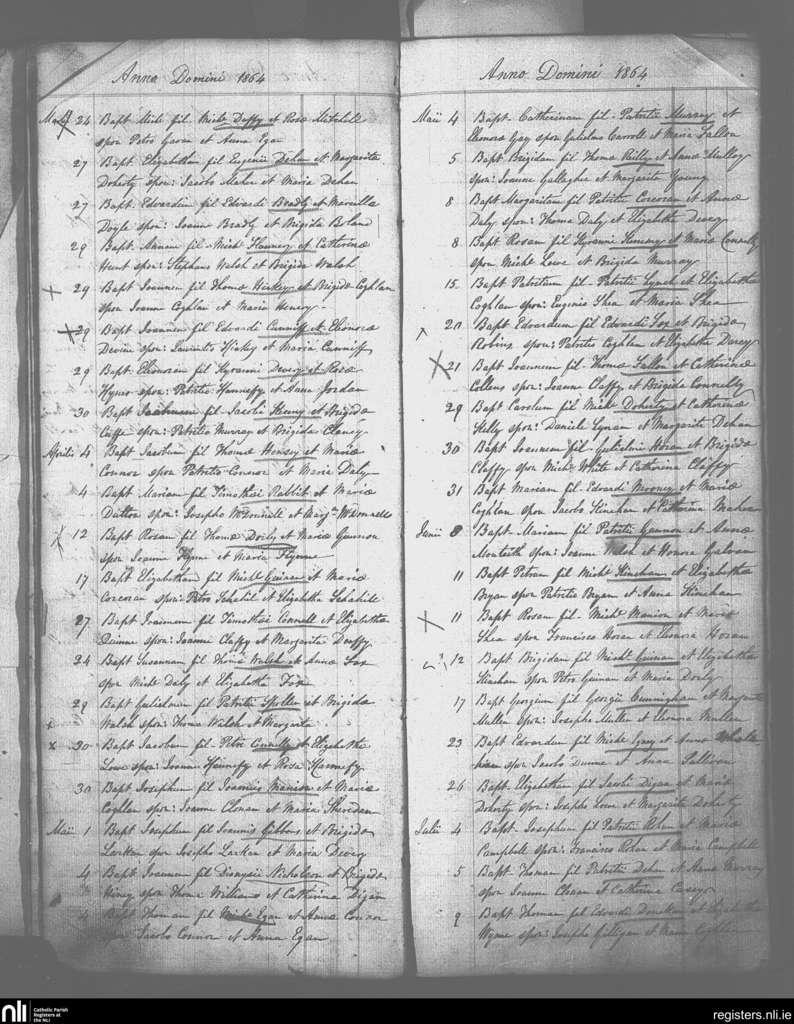 Anno Domini 1864
24 Bapt fil Michl Duffy et Rosæ Mitchell
spon Petro Gavan et Anna Egan
27 Bapt Elizabetham fil Eugenii Dehan et Margarita
Doherty spon: Jacobo Maher et Maria Dehan
27 Bapt Edvardum fil Edvardi Bradly et Marcella
Doyle spon: Joanne Bradly et Brigida Boland
29 Bapt. Annam fil. Michl Flannery et Catherinæ
Hunt spon: Stephano Walsh et Brigida Walsh
29 Bapt Joannem fil Thomæ Hickey et Brigidæ Coghlan
spon Joanne Coghlan et Maria Henery
29 Bapt Joannem fil Edvardi Canniff et Elionoræ
Devine spon: Laurentio Hickey et Maria Canniff
29 Bapt Elionoram fil Kyranni Devery et Rosæ
Hynes spon: Patritio Hannefy et Anna Jordan
30 Bapt fil Jacobi Kenny et Brigidæ
Cuffe spon: Patritio Murray et Brigida Clancy
Aprilis 4 Bapt Jacobum fil Thomæ Hensey et Mariæ
Connor spon Patritio Connor et Maria Daly
4 Bapt Mariam fil Timothei Rabbit et Mariæ
Dutton spon: Josepho McDonnell et Margta McDonnell
12 Bapt Rosam fil Thomæ Dooly et Mariæ Gunnson
spon Joanne Flynn et Maria Flynn
17 Bapt Elizabetham fil Michl Guinan et Mariæ
Corcoran spon: Petro Schahill et Elizabetha Schahill
27 Bapt Joannem fil Timothei Connell et Elizabetha
Quinne spon: Joanne Claffy et Margarita Duffy
24 Bapt Susannam fil Thomæ Walsh et Annæ Fox
spon Michl Daly et Elizabetha Fox
29 Bapt Gulielmum fil Patritii Spollen et Brigidæ
Walsh spon: Thoma Walsh et Margarita
30 Bapt Jacobum fil. Petri Connolly et Elizabetha
Lowe spon: Joanne Hannefy et Rosa Hannefy
30 Bapt Josephum fil Joannis Manion et Mariæ
Coghlan spon: Joanne Clonan et Maria Sheridan
Maii 1 Bapt Josephum fil Joannis Gibbons et Brigidæ
Larkin spon Josepho Larkin et Maria Devery
4 Bapt Joannem fil Dionysii Nicholson et Brigidæ
Hiney spon Thoma Williams et Catherina Digan
4 Bapt Thomam fil Michl Egan et Annæ Connor
spon Jacobo Connor et Anna Egan
Anno Domini 1864
Maii 4 Bapt. Catherinam fil. Patritii Murray et
Elionoræ Gay spon Gulielmo Carroll et Maria Fallon
5 Bapt Brigidam fil. Thomæ Reilly et Annæ Mulloy
spon: Joanne Gallagher et Margarita Young
8 Bapt Margaritam fil Patritii Corcoran et Annæ
Daly spon: Thoma Daly et Elizabetha Devery
8 Bapt Rosam fil Kyranni Kenney et Mariæ Connolly
spon Michl Lowe et Brigida Murray
15 Bapt Patritium fil Patritii Lynch et Elizabetha
Coghlan spon: Eugenio Shea et Maria Shea
20 Bapt Edvardum fil Edvardi Fox et Brigidæ
Robins spon: Patritio Coghlan et Elizabetha Darcy
21 Bapt Joannem fil. Thomæ Fallon et Catherinæ
Collens spon: Joanne Claffy et Brigida Connelly
29 Bapt Carolum fil Michl Doherty et Catherinæ
Kelly spon: Daniele Lynan et Margarita Dehan
30 Bapt Joannem fil. Gulielmi Horan et Brigidæ
Claffy spon Michl White et Catherina Claffy
31 Bapt Mariam fil. Edvardi Mooney et Mariæ
Coghlan spon Jacobo Kinehan et Catherina Mahon
Junii 8 Bapt. Mariam fil Patritii Gannon et Annæ
Monteith spon: Joanne Walsh et Honora Galvin
11 Bapt Petrum fil Michl Kinehan et Elizabetha
Bryan spon Patritio Bryan et Anna Kinehan
11 Bapt Rosam fil. Michl Manion et Mariæ
Shea spon Francisco Horan et Elionora Horan
12 Bapt Brigidam fil Michl Guinan et Elizabetha
Kinehan spon Petro Guinan et Maria Dooly
17 Bapt Georgium fil Georgii Cunningham et Margarita
Mullen spon: Josepho Mullen et Elionora Mullen
23 Bapt Edvardum fil Michl Egan et Annæ
spon Jacobo Dunne et Anna Sullivan
26 Bapt Elizabetham fil Jacobi Digan et Mariæ
Doherty spon: Josepho Lowe et Margarita Doherty
Julii 4 Bapt. Josephum fil Patritii Rohan et Mariæ
Campbell spon: Francisco Rohan et Maria Campbell
5 Bapt Thomam fil Patritii Dehan et Annæ Murray
spon Joanne Clonan et Catherina Casey
9 Bapt Thomam fil Edvardi et Elizabetha
Wynne spon: Josepho Gilligan et Maria
nli Catholic Parish
Registers at
the NLI
registers.nli.ie